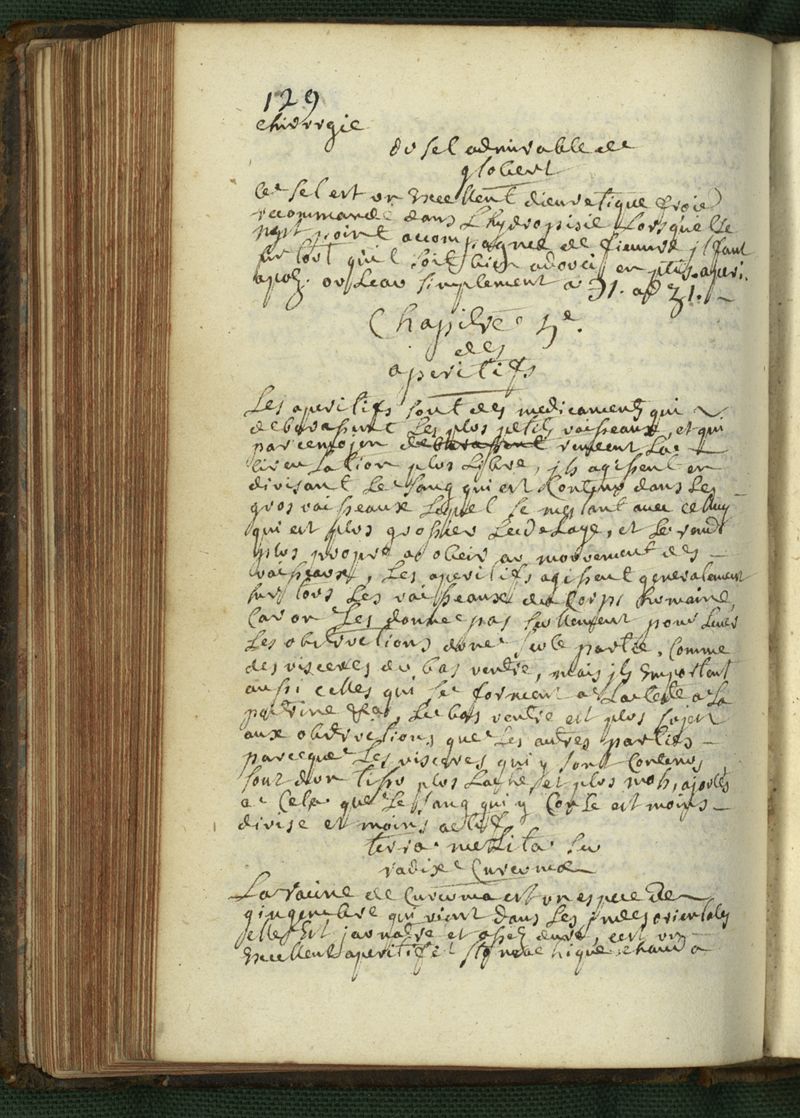 129
chirurgie
du sel admirable de
globert
Ce sel est un excellent diuretique froid
recommandé dans L'hydropisie Lorsquelle
nest point accompagnée de fieuure jl faut
sur tout quil soit bien adouci en ptis. aperi.
apoz. ou Leau simplement a ʒ1. ad ʒ1.
Chapitre 4e.
des
aperitifs
Les aperitifs sont des medicaments qui
debarassent Les plus petits vaisseaux, et qui
par ce moien debarassent rendent La
circulation plus Libre, jls agissent en
divisant Le sang qui est Contenu dans Les
gros vaisseaux Lequel se meslant auec celuy
qui est plus grossier Le delaye, et Le rend
plus propre a obeir au mouvement des
vaisseaux, Les aperitifs agissent generalement
sur tous Les vaisseaux du Corps humain,
Car on Les donne pas seullement pour Leuer
Les obstructions d'une seule partie, Comme
des visceres du bas ventre, mais jls Emportent
aussi celles qui se forment a La tete a La
poitrine &c, Le bas ventre est plus sujet
aux obstructions que Les autres parties
parceque Les visceres qui y sont Contenus,
sont d'un tissu plus Lache et plus mols, ajoutés
a Cela que Le sang qui y Coule est moins
divise et moins actif
terra merita seu
radix Curcumæ
La racine de Curcuma est un espece de
gingembre qui vient dans Les jndes orientales
elle Est jaunatre et assez dure, cest un
excellent aperitif et stomachique chaud a